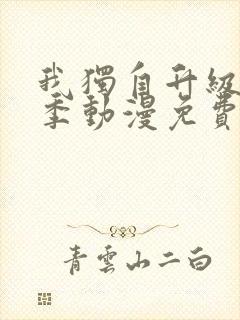 我獨自升級
季動漫免費
青雲山二白